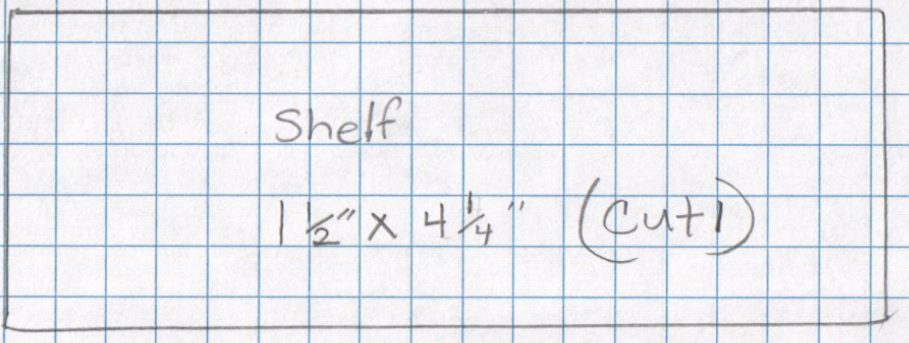 Shelf
1 1/2" x 4 1/4" (cut 1)